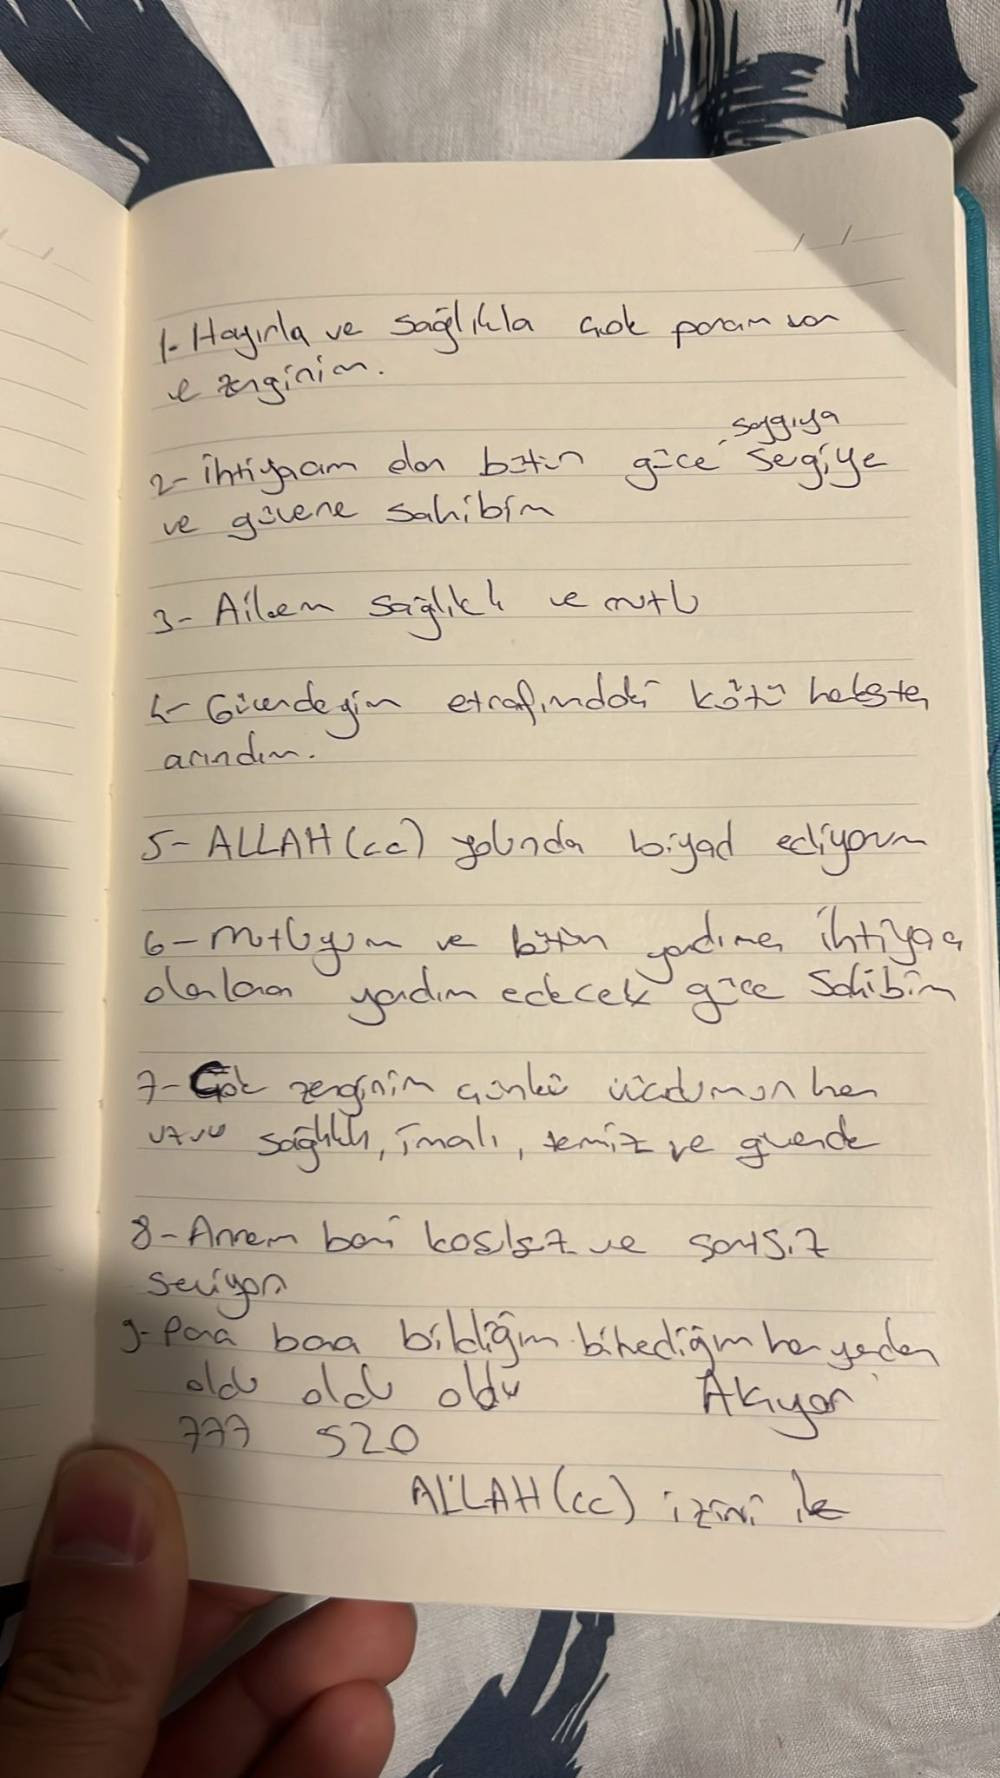 1- Hayırla ve sağlıkla çok param var
ve zenginim.
saygıya
2- ihtiyacım olan bütün güce, sevgiye
ve güvene sahibim
3- Ailem sağlıklı ve mutlu
4- Güvendeyim etrafımdaki kötü herkesten
arındım.
5- ALLAH (cc) yolunda ediyorum
6- mutluyum ve bütün yardıma ihtiyacı
olanlara yardım edecek güce Sahibim
7- Çok zenginim çünkü vücudumun her
uzvu sağlıklı, imanlı, temiz ve güvende
8- Annem beni koşulsuz ve şartsız
seviyor
9- Para bana bildiğim bilmediğim her yerden
oldu oldu oldu Akıyor
777 520
ALLAH (cc) izini ile